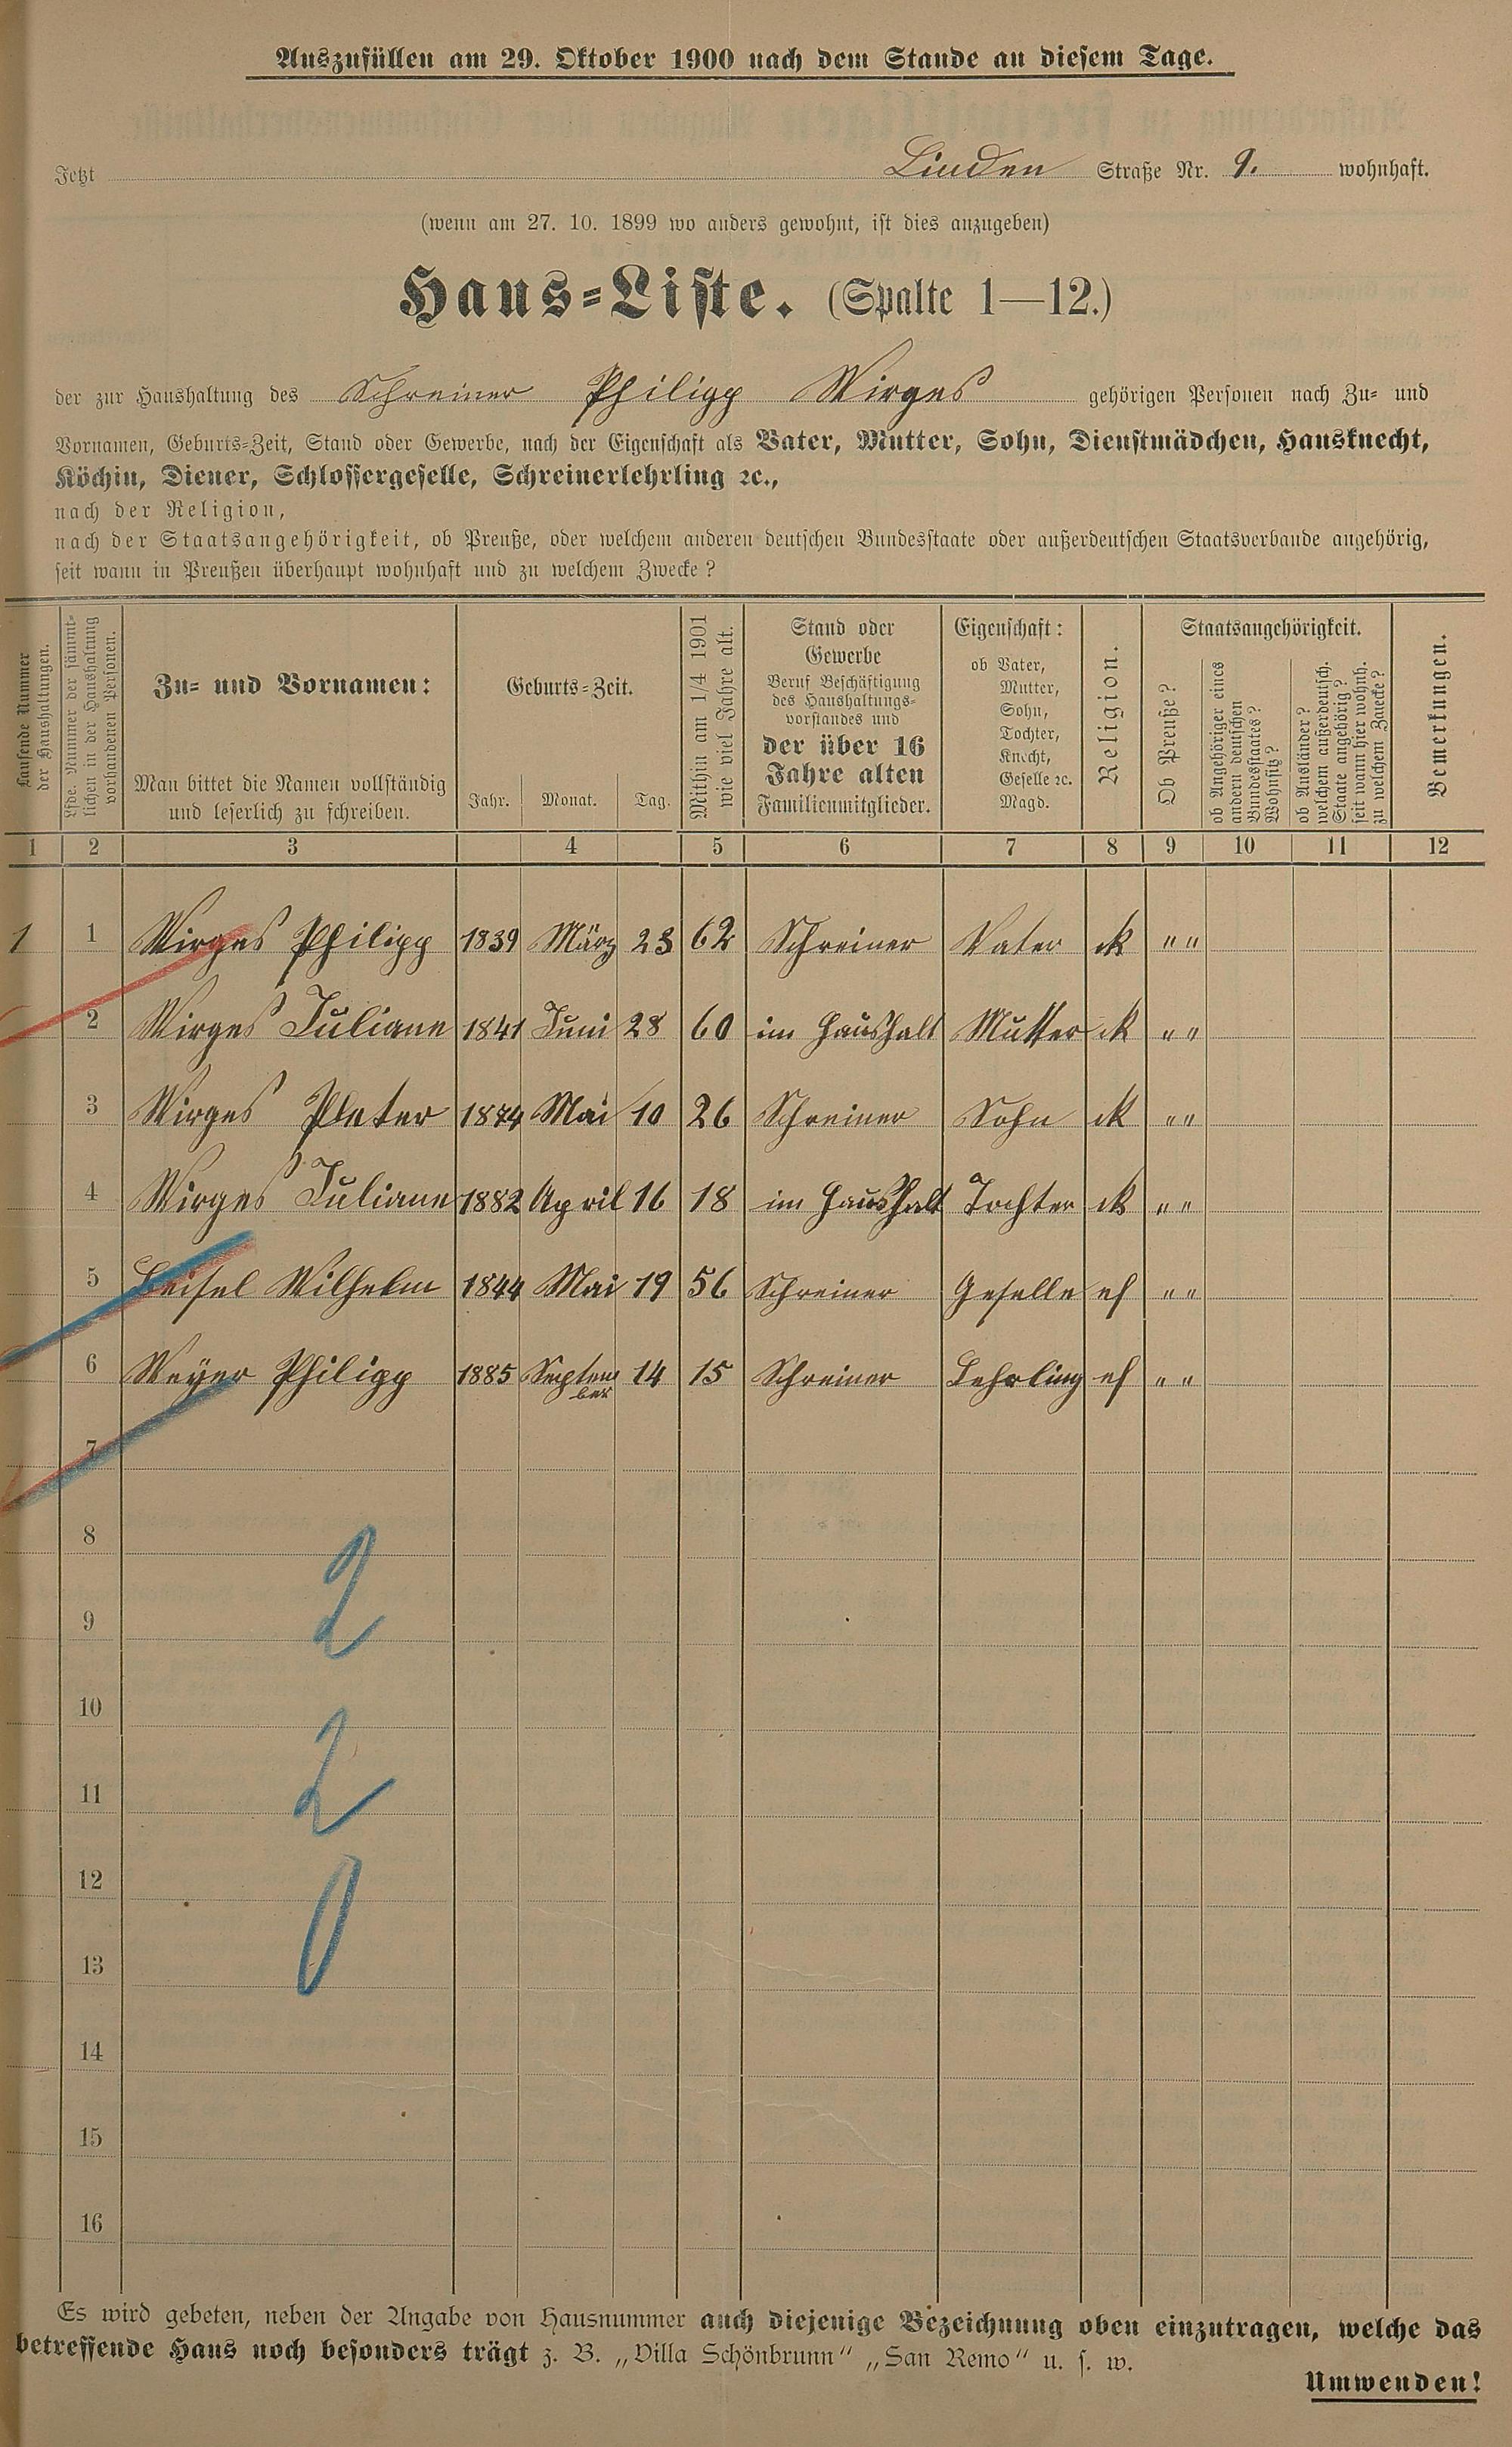 Auszufüllen am 29. Oktober 1900 nach dem Stande an diesem Tage.
Jetzt Linden Straße Nr. 9. wohnhaft.
(wenn am 27. 10. 1899 wo anders gewohnt, ist dies anzugeben)
Haus=Liste. (Spalte 1—12.)
der zur Haushaltung des Schreiner Philipp Wirges gehörigen Personen nach Zu= und
Vornamen, Geburts=Zeit, Stand oder Gewerbe, nach der Eigenschaft als Vater, Mutter, Sohn, Dienstmädchen, Hausknecht,
Köchin, Diener, Schlossergeselle, Schreinerlehrling ꝛc.,
nach der Religion,
nach der Staatsangehörigkeit, ob Preuße, oder welchem anderen deutschen Bundesstaate oder außerdeutschen Staatsverbande angehörig,
seit wann in Preußen überhaupt wohnhaft und zu welchem Zwecke?
Laufende Nummer
der Haushaltungen.
Lfde. Nummer der sämmt=
lichen in der Haushaltung
vorhandenen Personen.
Zu= und Vornamen:
Man bittet die Namen vollständig
und leserlich zu schreiben.
Geburts=Zeit.
Jahr. Monat. Tag.
Mithin am 1/4 1901
wie viel Jahre alt.
Stand oder
Gewerbe
Beruf Beschäftigung
des Haushaltungs=
vorstandes und
der über 16
Jahre alten
Familienmitglieder.
Eigenschaft:
ob Vater,
Mutter,
Sohn,
Tochter,
Knecht,
Geselle ꝛc.
Magd.
Religion.
Staatsangehörigkeit.
Ob Preuße?
ob Angehöriger eines
andern deutschen
Bundesstaates?
Wohnsitz?
ob Ausländer?
welchem außerdeutsch.
Staate angehörig?
seit wann hier wohnh.
zu welchem Zwecke?
Bemerkungen.
1 2 3 4 5 6 7 8 9 10 11 12
1 1 Wirges Philipp 1839 März 23 62 Schreiner Vater ck " "
2 Wirges Juliane 1841 Juni 28 60 im Haushalt Mutter ck " "
3 Wirges Peter 1874 Mai 10 26 Schreiner Sohn ck " "
4 Wirges Juliane 1882 April 16 18 im Haushalt Tochter ck " "
5 Beisel Wilhelm 1844 Mai 19 56 Schreiner Geselle ef " "
6 Weyer Philipp 1885 Septem 14 15 Schreiner Lehrling ef " "
ber
7
8
2
9
10
2
11
12
0
13
14
15
16
Es wird gebeten, neben der Angabe von Hausnummer auch diejenige Bezeichnung oben einzutragen, welche das
betreffende Haus noch besonders trägt z. B. „Villa Schönbrunn" „San Remo" u. s. w.
Umwenden!